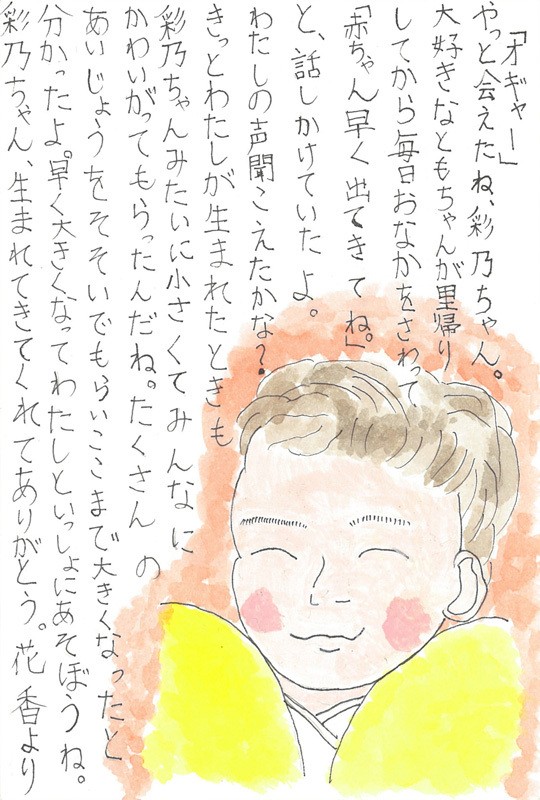 「オギャー」
やっと会えたね、彩乃ちゃん。
大好きなともちゃんが里帰り
してから毎日おなかをさわって
「赤ちゃん早く出てきてね。」
と、話しかけていたよ。
わたしの声聞こえたかな?
きっとわたしが生まれたときも
彩乃ちゃんみたいに小さくてみんなに
かわいがってもらったんだね。たくさんの
あいじょうをそそいでもらいここまで大きくなったと
分かったよ。早く大きくなってわたしといっしょにあそぼうね。
彩乃ちゃん、生まれてきてくれてありがとう。花香より